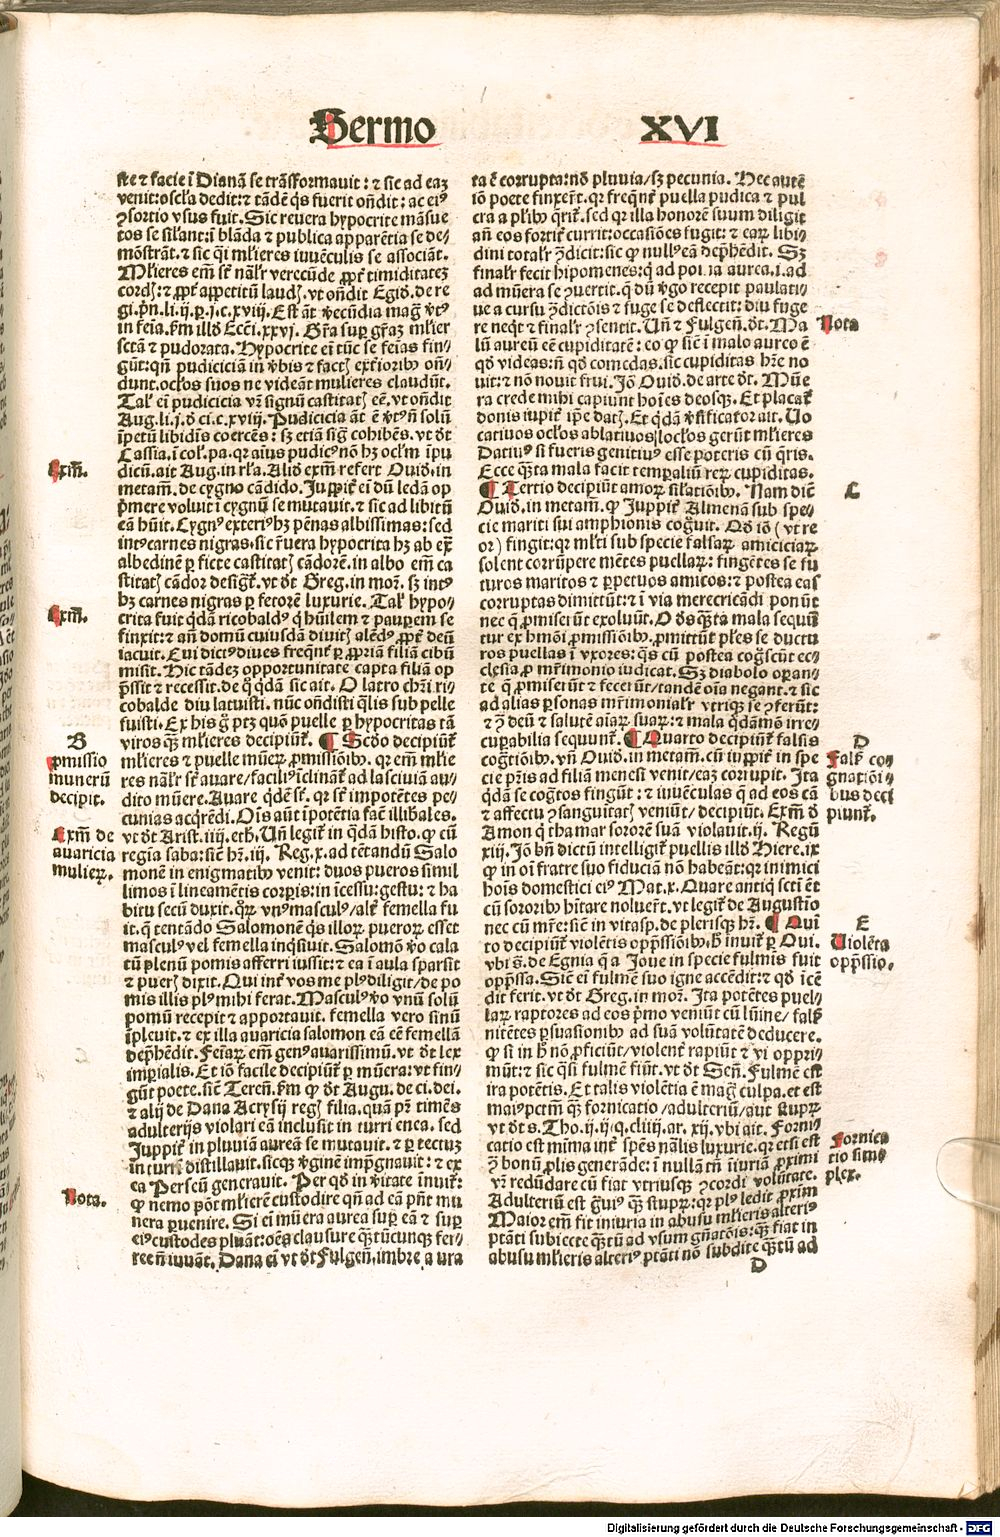 Sermo XVI
ste ⁊ facie ī Dianā se trāsformavit: ⁊ sic ad eaꝫ
venit: oscľa dedit: ⁊ tādē q̄s fuerit oñdit: ac eiꝰ
ꝯsortio vsus fuit. Sic revera hypocrite māsue
tos se sil̄ant: ī blāda ⁊ publica apparētia se de⸗
mōstrāt. ⁊ sic q̄i ml̓ieres iuvēculis se associāt.
Ml̓ieres em̄ st̄ nal̓r verecūde ꝓpt̓ timiditateꝫ
cordꝭ: ⁊ ꝓpt̓ appetitū laudꝭ. vt oñdit Egid̓. de re
gi. pn̄. li. ij. ꝑ. j. c. xviij. Est āt v̓ecūdia mag̓ v̓tꝰ
in feīa. ẜm illd̓ Ecc̄i. xxvj. Gr̄a suꝑ gr̄aꝫ ml̓ier
sctā ⁊ pudorata. Hypocrite ei̅ tūc se feīas fin⸗
gūt: qn̄ pudiciciā in v̓bis ⁊ factꝭ ext̓iorib̓ oñ⸗
dunt. ocl̓os suos ne videāt mulieres claudūt.
Tal̓ ei̅ pudicicia vꝫ signū castitatꝭ cē. vt oñdit
Aug. li. j. d̓ ci. c. xviij. Pudicicia āt ē v̓tꝰ nō solū
īpetū libidīs coercēs: sꝫ etiā sig̓ cohibēs. vt d̓t
Cassia. ī col̓. pa. qr aīus pudicꝰ nō hꝫ ocl̓m īpu
dicū. ait Aug. in rl̓a. Aliō exm̄ refert Ouid̓. in
metam̄. de cygno cādido. Juppit̓ ei̅ dū ledā op
p̓mere voluit ī cygnū se mutavit. ⁊ sic ad libitū
eā hūit. Cygnꝰ exteriꝰ hꝫ pēnas albissimas: sed
intꝰ carnes nigras. sic r̓vera hypocrita hꝫ ab ext̓
albedinē ꝑ ficte castitatꝭ cādorē. in albo em̄ ca
stitatꝭ cādor desig̓t̓. vt d̓t Greg. in mor̓. sꝫ intꝰ
hꝫ carnes nigras ꝑ fetorē luxurie. Tal̓ hypo⸗
crita fuit qd̓ā ricobaldꝰ q̓ hūilem ⁊ pauꝑem se
finxit: ⁊ añ domū cuiusdā divitꝭ alēdꝰ ꝓpt̓ deū
iacuit. Cui dictꝰ dives freq̄nt̓ ꝑ ꝓpriā filiā cibū
misit. Hic tādeꝫ opportunitate capta filiā op
p̓ssit ⁊ recessit. de q̓ qd̓ā sic ait. O latro chr̄i ri⸗
cobalde diu latuisti. nūc oñdisti ql̓is sub pelle
fuisti. Ex his g̓ ptꝫ quō puelle ꝑ hypocritas tā
viros qꝫ ml̓ieres decipiūt̓. ¶ Scd̓o decipiūt̓
ml̓ieres ⁊ puelle muneꝝ ꝓmissiōib̓. qr em̄ ml̓ie
res nal̓r st̄ avare/ faciliꝰ īclināt̓ ad lasciviā au⸗
dito mūere. Avare qd̓ē st̄. qr st̄ impotētes pe⸗
cunias acq̓rēdi. Oīs aūt īpotētia fac̄ illibales.
vt d̓t Arist. iiij. eth. Vn̄ legit̓ in qd̓ā histo. ꝙ cū
regīa saba: sic̄ hr̄. iij. Reg. x. ad tētandū Salo
monē in enigmatib̓ venit: duos pueros simil
limos ī lineamētis corꝑis: in īcessu: gestu: ⁊ ha
bitu secū duxit. q̓ꝝ vnꝰ masculꝰ/ alt̓ femella fu
it. q̄ tentādo Salomonē q̄s illoꝝ pueroꝝ esset
masculꝰ vel femella inq̓sivit. Salomō v̓o cala
tū plenū pomis afferri iussit: ⁊ ea ī aula sparsit
⁊ puerꝭ dixit. Qui int̓ vos me plꝰ diligit/ de po
mis illis plꝰ mihi ferat. Masculꝰ v̓o vnū solū
pomū recepit ⁊ apportavit. femella vero sinū
īplevit. ⁊ ex illa avaricia salomon eā eē femellā
dep̓hēdit. Feīaꝝ em̄ genꝰ avarissimū. vt d̓t lex
imꝑialis. Et iō facile decipiūt̓ ꝑ mūera: vt fin⸗
gūt poete. sic̄ Teren̄. ẜm ꝙ d̓t Augu. de ci. dei.
⁊ alij de Dana Acrysij regꝭ filia. quā pr̄ timēs
adulterijs violari eā inclusit in turri enea. sed
Juppit̓ in pluviā aureā se mutavit. ⁊ ꝑ tectuꝫ
in turri distillavit. sicqꝫ v̓ginē imp̓gnavit: ⁊ ex
ea Perseū generavit. Per qd̓ in v̓itate inuit̓:
ꝙ nemo pōt ml̓ierē custodire qn̄ ad eā pn̄t mu
nera ꝑvenire. Si eñ mūera aurea suꝑ eā ⁊ suꝑ
eiꝰ custodes pluāt: oēs clausure qꝫtūcunqꝫ fer⸗
ree nō iuvāt. Dana ei̅ vt d̓t Fulgen̄. imbre aura
ta ē corrupta: nō pluvia/ sꝫ pecunia. Hec autē
iō poete finxer̄t. qr freq̄nt̓ puella pudica ⁊ pul
cra a pl̓ib̓ q̄rit̓. sed qr illa honorē suum diligit
añ eos fortit̓ currit: occasiōes fugit: ⁊ eaꝝ libi⸗
dini total̓r ꝯdicit: sic ꝙ nullꝰ eā dep̓hēdit. Sꝫ
final̓r fecit hipomenes: q̓ ad poma aurea. i. ad
ad mūera se ꝯuertit. q̄ dū v̓go recepit paulati⸗
ue a cursu ꝯdictōis ⁊ fuge se deflectit: diu fuge
re neq̓t ⁊ final̓r ꝯsentit. Vn̄ ⁊ Fulgen̄. d̓t. Ma
lū aureū eē cupiditatē: eo ꝙ sic̄ ī malo aureo ē
qd̓ videas: nō qd̓ comedas. sic cupiditas hr̄e no
uit: ⁊ nō novit frui. Jō Ouid̓. de arte d̓t. Mūe
ra crede mihi capiunt hoīes deosqꝫ. Et placat̓
donis iupit̓ ip̄e datꝭ. Et qd̓ā v̓sificator ait. Vo
cativos ocl̓os ablativos/ locl̓os gerūt ml̓ieres
Dativꝰ si fueris genitivꝰ esse poteris cū q̓ris.
Ecce qꝫta mala facit temꝑaliū reꝝ cupiditas.
¶ Tertio decipiūt̓ amoꝝ sil̓atiōib̓. Nam dic̄
Ouid̓. in metam̄. ꝙ Juppit̓ Almenā sub spe⸗
cie mariti sui amphionis cog̓uit. Qd̓ iō (vt re
or) fingit: qr ml̓ti sub specie falsaꝝ amiciciaꝝ
solent corrūpere mētes puellaꝝ: fingētes se fu
turos maritos ⁊ ꝑpetuos amicos: ⁊ postea eas
corruptas dimittūt: ⁊ ī via meretricādi ponūt
nec q̄ ꝓmiserūt exolvūt. O d̓s qꝫta mala sequū
tur ex hmōi ꝓmissiōib̓. ꝓmittūt pl̓es se ductu
ros puellas ī vxores: q̄s cū postea cog̓scūt ec⸗
clesia ꝓ mr̄imonio iudicat. Sꝫ diabolo oꝑan⸗
te q̄ ꝓmiserūt ⁊ fecerūt/ tandē oīa negant. ⁊ sic
ad alias ꝑsonas mr̄imonial̓r vtriqꝫ se ꝯferūt:
⁊ ꝯ̄ deū ⁊ salutē aīaꝝ suaꝝ: ⁊ mala qd̓āmō irre⸗
cuꝑabilia sequunt̓. ¶ Quarto decipiūt̓ falsis
cog̓tiōib̓. vn̄ Ouid̓. in metam̄. cū iuppit̓ in spe
cie pr̄is ad filiā menesi venit/ eaꝫ corrupit. Jta
qd̓ā se cog̓tos fingūt: ⁊ iuvēculas q̄ ad eos cā
⁊ affectu ꝯsanguitatꝭ veniūt/ decipiūt. Exm̄ d̓
Amon q̓ thamar sororē suā violavit. ij. Regū
xiij. Jō bn̄ dictū intelligit̓ puellis illd̓ Hiere. ix
ꝙ in oī fratre suo fiduciā nō habeāt: qr inimici
hoīs domestici eiꝰ Mat. x. Quare antiq̓ scti̅ ēt
cū sororib̓ hītare noluer̄t. vt legit̓ de Augustīo
nec cū mr̄e: sic̄ in vitasp. de plerisqꝫ hr̄. ¶ Qui̅
to decipiūt̓ violētis opp̓ssiōib̓. h̓ inuit̓ ꝑ Oui.
vbi s̓. de Egnia q̄ a Joue in specie fulmīs fuit
opp̓ssa. Sic̄ ei̅ fulmē suo igne accēdit: ⁊ qd̓ īcē
dit ferit. vt d̓t Greg. in mor̓. Jta potētes puel⸗
laꝝ raptores ad eos p̓mo veniūt cū lūine/ fals̓
nitētes ꝑsuasionib̓ ad suā volūtatē deducere.
ꝙ si in h̓ nō ꝓficiūt/ violent̓ rapiūt ⁊ vi oppri⸗
mūt: ⁊ sic q̓si fulmē fiūt. vt d̓t Sen̄. Fulmē est
ira potētis. Et talis violētia ē mag̓ culpa. et est
maiꝰ pctm̄ qꝫ fornicatio/ adulteriū/ aut stupꝝ
vt d̓t s. Tho. ij. ij. q. cliiij. ar. xij. vbi ait. Forni⸗
catio est mīma int̓ spēs nal̓is luxurie. qr etsi est
ꝯ̄ bonū ꝓlis generāde: ī nullā tn̄ iīuriā ꝓximi
vr̄ redūdare cū fiat vtriusqꝫ ꝯcordi volūtate.
Adulteriū est g̓viꝰ qꝫ stupꝝ: qr plꝰ ledit ꝓxim̄
Maior em̄ fit iniuria in abusu ml̓ieris alteriꝰ
ptāti subiecte qꝫtū ad vsum gn̄atōis: qꝫ fiat in
abusu ml̓ieris alteriꝰ ptāti nō subdite qꝫtū ad
D
Exm̄.
Exm̄.
B
ꝓmissio
munerū
decipit.
Exm̄ de
avaricia
mulieꝝ.
Nota.
Nota
C
D
Fals̓ cog
gnatiōi⸗
bus deci
piunt̓.
E
Violēta
opp̓ssio.
Fornica
tio sim⸗
plex.
Digitalisierung gefördert durch die Deutsche Forschungsgemeinschaft - DFG